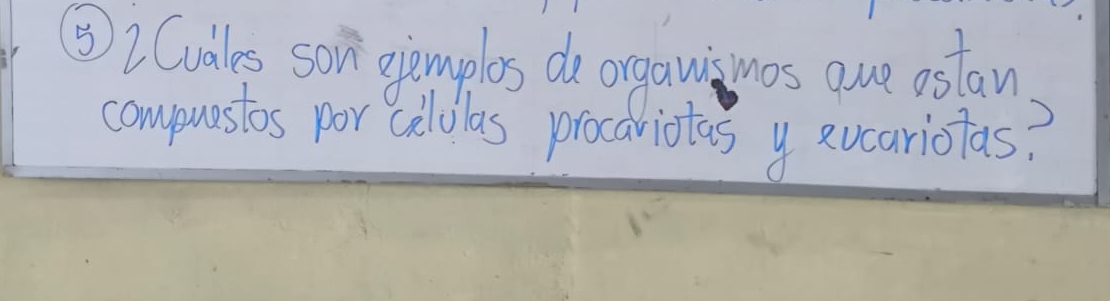 ⑤ ¿Cuáles son ejemplos de organismos que estan
compuestos por células procariotas y eucariotas?